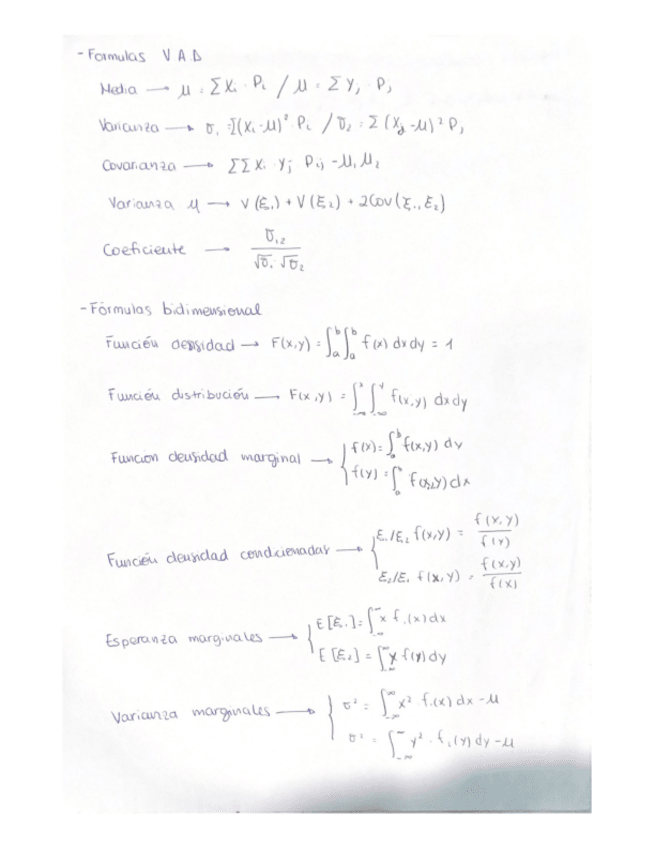 - Formulas V A D
Media → μ = Σ Xi · Pi / μ = Σ Yj · Pj
Varianza → σ1 = Σ(Xi - μ)² · Pi / σ2 = Σ (Xj - μ)² Pj
Covarianza → ΣΣ Xi · Yj Pij - μ1 μ2
Varianza μ → V(ξ1) + V(ξ2) + 2Cov(ξ1, ξ2)
Coeficiente → σ12 / √σ1 √σ2
- Fórmulas bidimensional
Función densidad → F(x,y) = ∫_a^b ∫_a^b f(x) dx dy = 1
Función distribución → F(x,y) = ∫_-∞^x ∫_-∞^y f(x,y) dx dy
Función densidad marginal → { f(x) = ∫_a^b f(x,y) dy
f(y) = ∫_a^b f(x,y) dx
Función densidad condcionadar → { ξ1/ξ2 f(x,y) = f(x,y) / f(y)
ξ2/ξ1 f(x,y) = f(x,y) / f(x)
Esperanza marginales → { E[ξ1] = ∫_-∞^∞ x f1(x) dx
E[ξ2] = ∫_-∞^∞ y f(y) dy
Varianza marginales → { σ² = ∫_-∞^∞ x² f1(x) dx - μ
σ² = ∫_-∞^∞ y² · f2(y) dy - μ